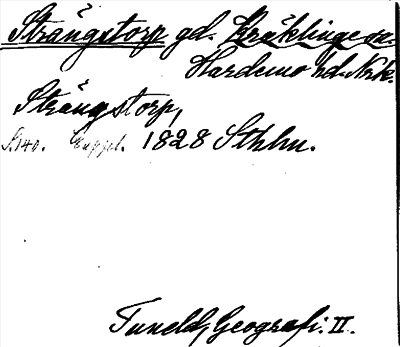 Strängstorp gd. Kräklinge sn.
Hardemo hd. Nrk.
Strängstorp,
S. 140. Suppl. 1828 Sthlm.
Tuneld, Geografi. II.